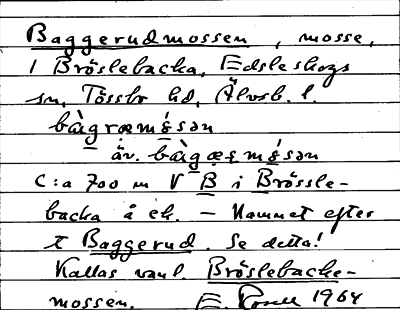 Baggerudmossen, mosse,
i Bröslebacka, Edsleskogs
sn, Tössbo hd, Älvsb. l.
bàgrœmɔ́sən
äv. bàgœʂmɔ́sən
C:a 700 m V B i Brössle-
backa å ek. – Namnet efter
t Baggerud. Se detta!
Kallas vanl. Bröslebacke-
mossen. E. 1964